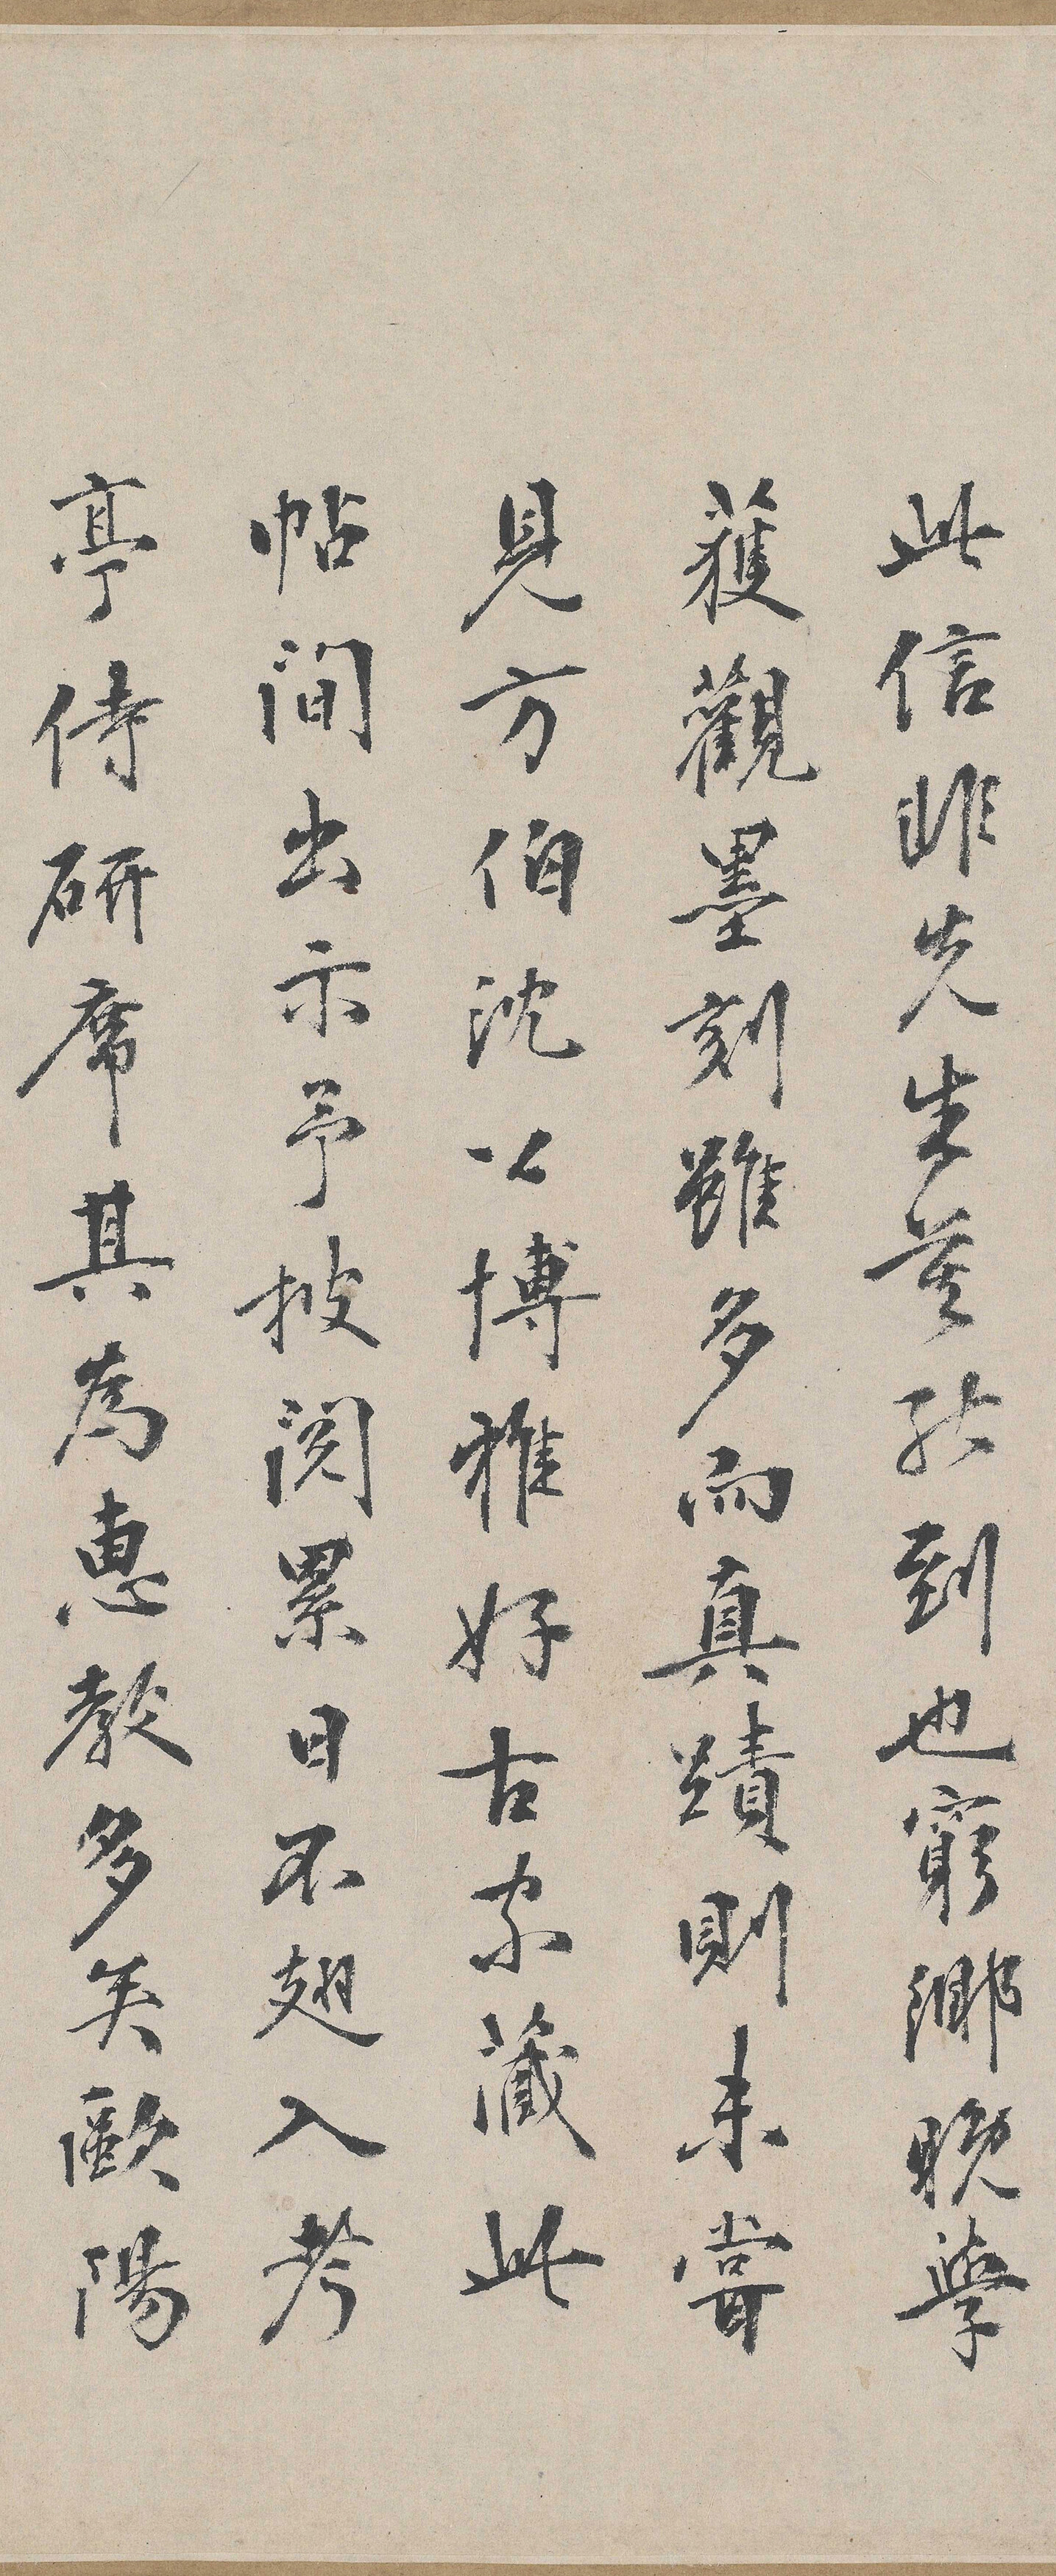 此信非先生莫能到也窮鄉晚學
獲觀墨刻雖多而真蹟則未嘗
見方伯沈公博雅好古家藏此
帖間出示予披閱累日不翅入考
亭侍研席其為惠教多矣歐陽